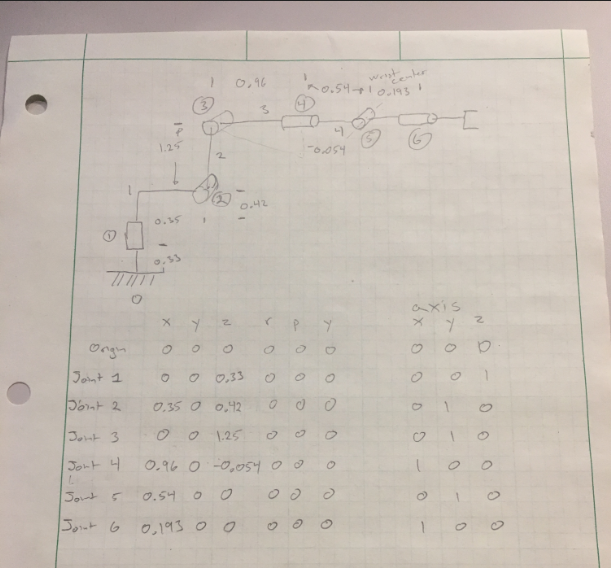 1 0.96 1 0.54 → 1 wrist center 0.193 1
3 3 4 4 5 6
-0.054
P
1.25
2
1 2
0.42
0.35
1
0.33
0
axis
x y z r p y x y z
Origin 0 0 0 0 0 0 0 0 0
Joint 1 0 0 0.33 0 0 0 0 0 1
Joint 2 0.35 0 0.42 0 0 0 0 1 0
Joint 3 0 0 1.25 0 0 0 0 1 0
Joint 4 0.96 0 -0.054 0 0 0 1 0 0
Joint 5 0.54 0 0 0 0 0 0 1 0
Joint 6 0.193 0 0 0 0 0 1 0 0